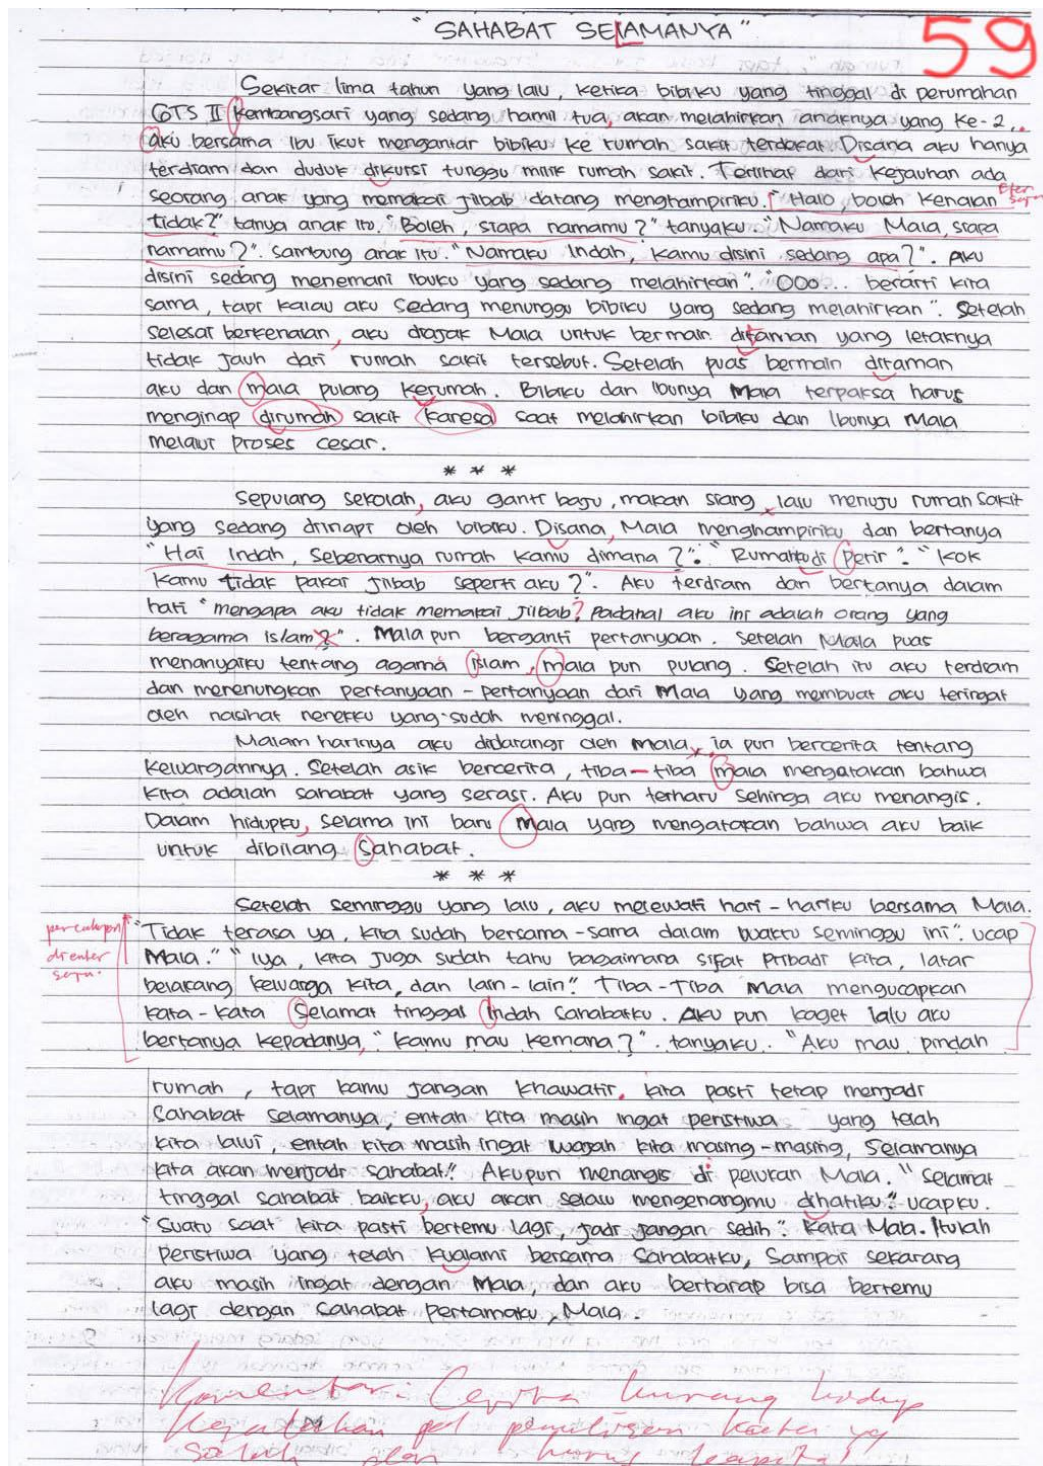 "SAHABAT SELAMANYA"
59
Sekitar lima tahun yang lalu, ketika bibiku yang tinggal di perumahan
GTS II Kembangsari yang sedang hamil tua, akan melahirkan anaknya yang ke-2,.
aku bersama Ibu ikut mengantar bibiku ke rumah sakit terdekat. Disana aku hanya
terdiam dan duduk dikursi tunggu milik rumah sakit. Terlihat dari kejauhan ada
seorang anak yang memakai jilbab datang menghampiriku. "Halo, boleh kenalan
tidak?" tanya anak itu. "Boleh, siapa namamu?" tanyaku. "Namaku Mala, siapa
namamu?". sambung anak itu. "Namaku Indah, kamu disini sedang apa?". Aku
disini sedang menemani Ibuku yang sedang melahirkan". "Ooo... berarti kita
sama, tapi kalau aku sedang menunggu bibiku yang sedang melahirkan". Setelah
selesai berkenalan, aku diajak Mala untuk bermain ditaman yang letaknya
tidak jauh dari rumah sakit tersebut. Setelah puas bermain ditaman
aku dan mala pulang kerumah. Bibiku dan Ibunya Mala terpaksa harus
menginap dirumah sakit karesa saat melahirkan bibiku dan Ibunya Mala
melalui proses cesar.
* * *
Sepulang sekolah, aku ganti baju, makan siang, lalu menuju rumah sakit
yang sedang diinapi oleh bibiku. Disana, Mala menghampiriku dan bertanya
"Hai Indah, sebenarnya rumah kamu dimana?". "Rumahku di Petir". "Kok
kamu tidak pakai jilbab seperti aku?". Aku terdiam dan bertanya dalam
hati "mengapa aku tidak memakai jilbab? padahal aku ini adalah orang yang
beragama Islam?". Mala pun berganti pertanyaan. Setelah Mala puas
menanyaiku tentang agama islam, mala pun pulang. Setelah itu aku terdiam
dan merenungkan pertanyaan-pertanyaan dari Mala yang membuat aku teringat
oleh nasihat nenekku yang sudah meninggal.
Malam harinya aku didatangi oleh mala, ia pun bercerita tentang
keluargannya. Setelah asik bercerita, tiba-tiba mala mengatakan bahwa
kita adalah sahabat yang serasi. Aku pun terharu sehinga aku menangis.
Dalam hidupku, selama ini baru Mala yang mengatakan bahwa aku baik
untuk dibilang Sahabat.
* * *
Setelah seminggu yang lalu, aku melewati hari-hariku bersama Mala.
percakapan
di enter
saja.
"Tidak terasa ya, kita sudah bersama-sama dalam waktu seminggu ini". ucap
Mala." "Iya, kita juga sudah tahu bagaimana sifat pribadi kita, latar
belakang keluarga kita, dan lain-lain." Tiba-Tiba Mala mengucapkan
kata-kata Selamat tinggal Indah sahabatku. Aku pun kaget lalu aku
bertanya kepadanya, "kamu mau kemana?". tanyaku. "Aku mau pindah
rumah, tapi kamu jangan khawatir, kita pasti tetap menjadi
sahabat selamanya, entah kita masih ingat peristiwa yang telah
kita lalui, entah kita masih ingat wajah kita masing-masing, Selamanya
kita akan menjadi sahabat." Akupun menangis di pelukan Mala. "Selamat
tinggal sahabat baikku, aku akan selalu mengenangmu dihatiku." ucapku.
"Suatu saat kita pasti bertemu lagi, jadi jangan sedih". Kata Mala. Itulah
Peristiwa yang telah kualami bersama Sahabatku, Sampai sekarang
aku masih ingat dengan Mala, dan aku berharap bisa bertemu
lagi dengan sahabat pertamaku, Mala.
Komentar: Cerita kurang hidup
Kesalahan pd penulisan kata yg
salah dan harus kapital